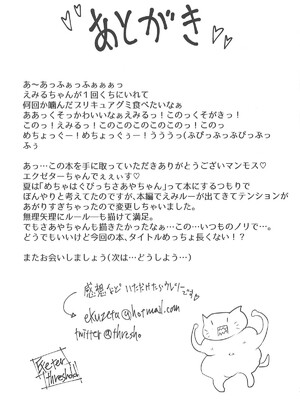 あとがき
あ〜あっふぁっふぁぁぁっ
えみるちゃんが１回くちにいれて
何回か噛んだプリキュアグミ食べたいなぁ
ああっくそっかわいいなぁえみるっ！このっくそがきっ！
このっ！えみるっ！このこのこのこのこのっ！このっ
めちょっぐー！めちょっぐぅー！うううっ(ふぴっぷっぷぴっぷっ
ふぅ
あっ…この本を手に取っていただきありがとうございマンモス♡
エクゼターちゃんでぇぇいす♡
夏は「めちゃはぐぴっちさあやちゃん」って本にするつもりで
ぼんやりと考えてたのですが、本編でえみルーが出てきてテンションが
あがりすぎちゃったので変更しちゃいました。
無理矢理にルールーも描けて満足。
でもさあやちゃんも描きたかったなぁ…この…いつものノリで…。
どうでもいいけど今回の本、タイトルめっちょ長くない！？
またお会いしましょう(次は…どうしよう…)
感想など いただけたらウレシーです♡
ekuzeta@hotmail.com
twitter@thresho
Exeter
threshold